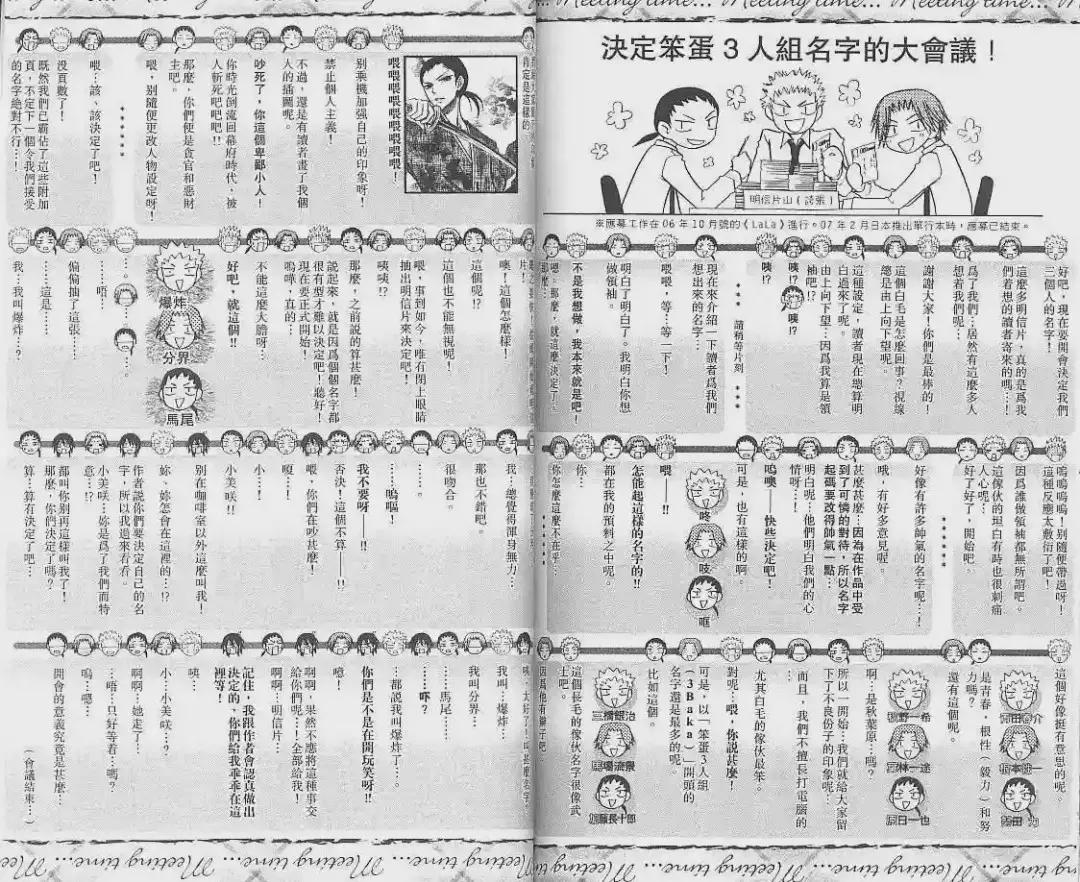 Meeting time... Meeting time...
決定笨蛋3人組名字的大會議!
明信片山(誇張)
※應募工作在06年10月號的《LaLa》進行。07年2月日本推出單行本時,應募已結束。
好吧,現在要開會決定我們
三個人的名字!
這麼多明信片,真的是爲我
們着想的讀者寄來的嗎…!
爲了我們…居然有這麼多人
想着我們呢…
謝謝大家!你們是最棒的!
這個白毛是怎麼回事?視線
總是由上向下望呢。
這種設定,讀者現在總算明
白過來了呢。
由上向下望…因爲我算是領
袖吧!?
咦!?
咦!?
咦!?
*** 請稍等片刻 ***
現在來介紹一下讀者爲我們
想出來的名字…
喂喂,等…等一下!
明白了明白了。我明白你想
做領袖。
不是我想做,我本來就是吧!
嗯。那麼,就這麼決定了。
嗚嗚嗚嗚!別隨便帶過呀!
這種反應太敷衍了吧!
因爲誰做領袖都無所謂吧。
這傢伙的坦白有時也很刺痛
人心呢…
好了好了,開始吧。
*****
好像有許多帥氣的名字呢…!
哦,有好多意見喔。
甚麼甚麼…因為在作品中受
到了可憐的對待,所以名字
起碼要改得帥氣一點…
明白呢…他們明白我們的心
情呀…!
嗚噢——快些決定吧!
可是,也有這樣的啊。
咚
吱
哐
喂——!!
怎能起這樣的名字的!!
都在我的預料之中呢。
你…
你怎麼這麼不在乎…
*****
這個好像挺有意思的呢。
是青春,根性(毅力)和努
力嗎?
還有這個呢。
…
啊…是秋葉原…嗎?
所以一開始…我們就給大家留
下了不良份子的印象呢…
而且,我們不擅長打電腦的
尤其白毛的傢伙最笨。
對呢…喂,你說甚麼!
可是,以「笨蛋3人組
(3Baka)」開頭的
名字還是最多的呢。
比如這個。
三橋銀治
這個長毛的傢伙名字很像武
士吧。
喂喂喂喂喂喂喂喂喂喂!
別乘機加强自己的印象呀!
禁止個人主義!
不過,還是有讀者畫了我個
人的插圖呢。
吵死了,你這個卑鄙小人!
你時光倒流回幕府時代,被
人斬死吧吧吧!!
那麼,你們便是貪官和惡財
主吧。
喂,別隨便更改人物設定呀!
*****
喂…該、該決定了吧!
没頁數了!
既然我們已霸佔了這些附加
頁,不定下一個令我們接受
的名字絶對不行…!
噢!這個怎麼樣!
這個呢!?
這個也不能無視呢!
喂,事到如今,唯有閉上眼睛
抽出明信片來決定吧!
咦咦!?
那麼,之前說的算甚麼!
說起來,就是因爲個個名字都
很有型才難以決定吧!聽好!
現在要正式開始!
嗚嘩,真的…
不能這麼大膽呀…
好吧,就這個!!
爆炸
分界
馬尾
…。
…。
……唔…
偏偏抽了這張…
……這是……
我…我叫爆炸…?
我…總覺得渾身無力…
那也不錯吧。
很吻合。
……。
……嗚嘔!
我不要呀…!!
否決!這個不算——!!
喂,你們在吵甚麼!
嗄…!
小…!
小美咲!!
別在咖啡室以外這麼叫我!
妳、妳怎會在這裡的…!?
作者說你們要決定自己的名
字,所以我過來看看。
小美咲…妳是爲了我們而特
意…!?
都叫你別再這樣叫我了!
那麼,你們決定了嗎?
算…算有決定了吧…
我叫…爆炸…
我叫分界…
……馬尾……
……吓?
…都說我叫爆炸了…。
你們是不是在開玩笑呀!!
噫!
啊啊,果然不應將這種事交
給你們呢!…全部給我!
啊啊…明信片…
記住,我跟作者會認真做出
決定的、你們給我乖乖在這
裡等!
咦…
小…小美咲…?
啊啊…她走了…
…唔…只好等着…嗎?
嗚…嗯…
開會的意義究竟是甚麼…
(會議結束…)
Meeting time... Meeting time...